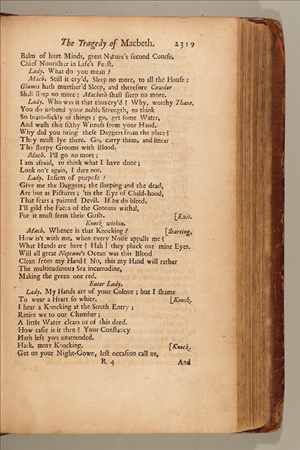 The Tragedy of Macbeth. 2319
Balm of hurt Minds, great Nature's second Course,
Chief Nourisher in Life's Feast.
Lady. What do you mean?
Mach. Still it cry'd, Sleep no more, to all the House:
Glamis hath murther'd Sleep, and therefore Cawdor
Shall sleep no more; Macbeth shall sleep no more.
Lady. Who was it that thus cry'd? Why, worthy Thane,
You do unbend your noble Strength, to think
So brain-sickly of things; go, get some Water,
And wash this filthy Witness from your Hand.
Why did you bring these Daggers from the place?
They must lye there. Go, carry them, and smear
The sleepy Grooms with Blood.
Mach. I'll go no more;
I am afraid, to think what I have done;
Look on't again, I dare not.
Lady. Infirm of purpose!
Give me the Daggers; the sleeping and the dead,
Are but as Pictures; 'tis the Eye of Child-hood,
That fears a painted Devil. If he do bleed,
I'll gild the Faces of the Grooms withal,
For it must seem their Guilt. [Exit.
Knock within.
Mach. Whence is that Knocking? [Starting.
How is't with me, when every Noise appalls me?
What Hands are here? Hah! they pluck out mine Eyes.
Will all great Neptune's Ocean was this Blood
Clean from my Hand? No, this my Hand will rather
The multitudinous Sea incarnadine,
Making the green one red.
Enter Lady.
Lady. My Hands are of your Colour; but I shame
To wear a Heart so white. [Knock.
I hear a Knocking at the South Entry;
Retire we to our Chamber;
A little Water clears us of this deed.
How easie is it then? Your Constancy
Hath left you unattended.
Hark, more Knocking. [Knock.
Get on your Night-Gown, lest occasion call us,
R 4 And